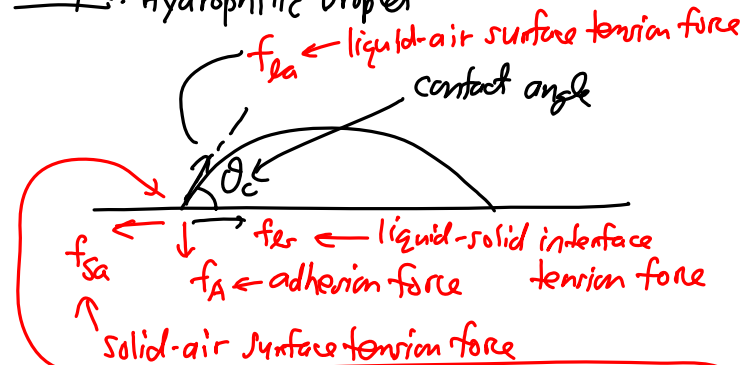 Hydrophilic Droplet
f_la ← liquid-air surface tension force
contact angle
θc
f_sa
f_ls ← liquid-solid interface tension force
f_A ← adhesion force
solid-air surface tension force